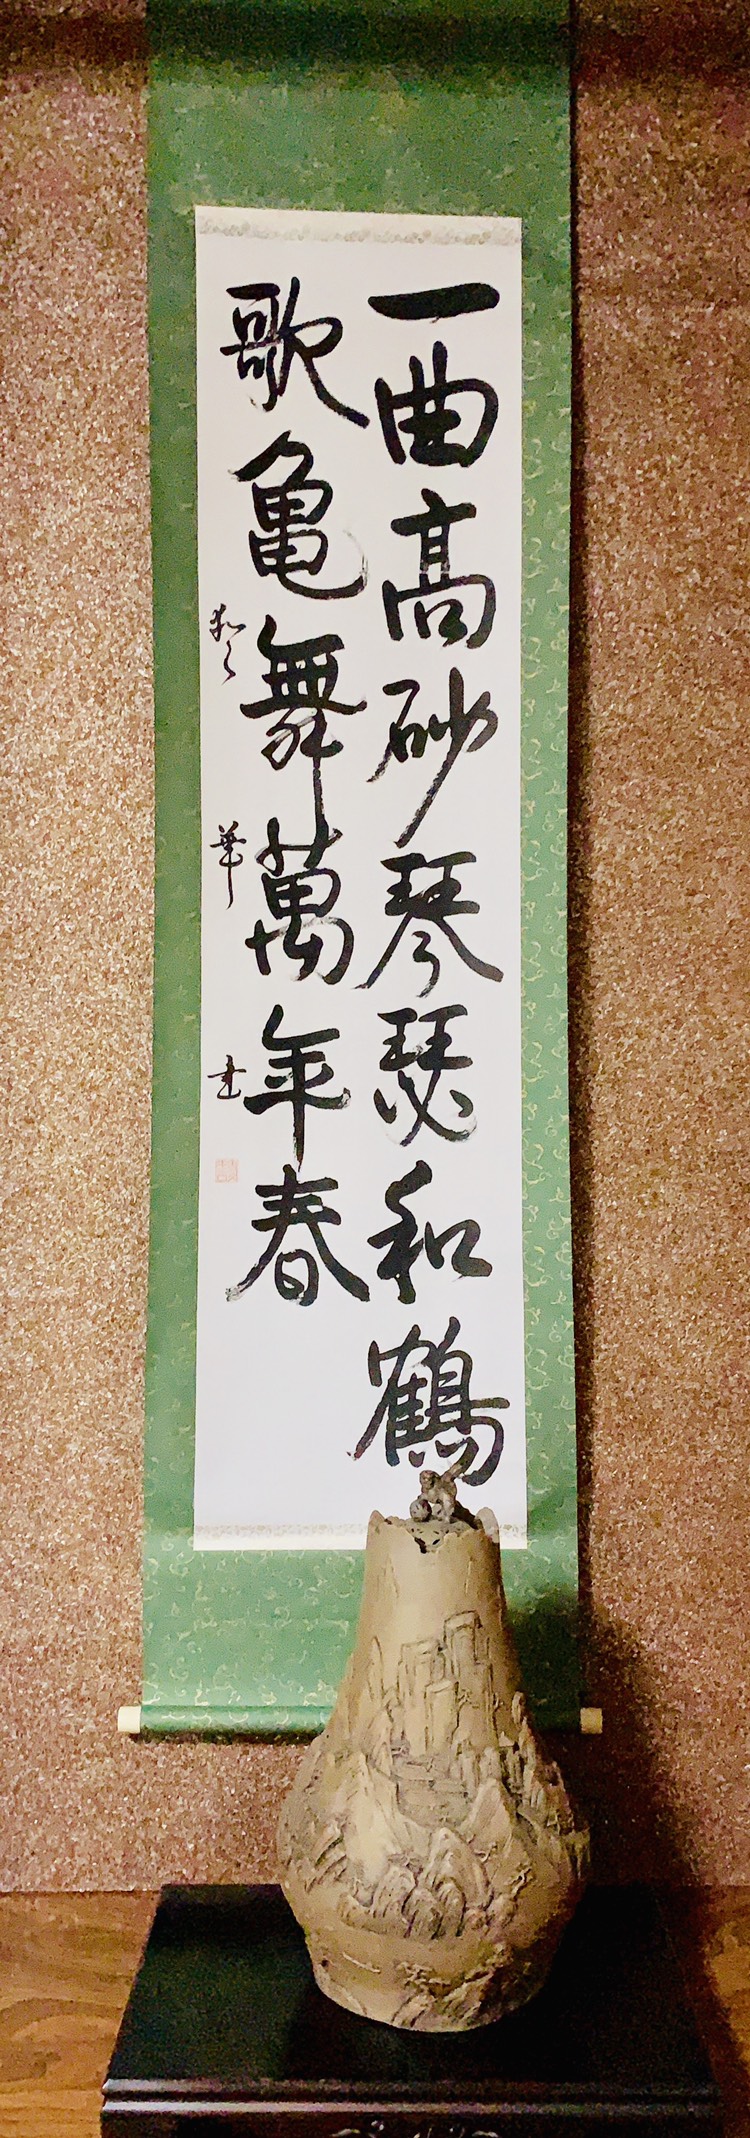 一曲高砂琴瑟和鶴
歌亀舞萬年春
華書